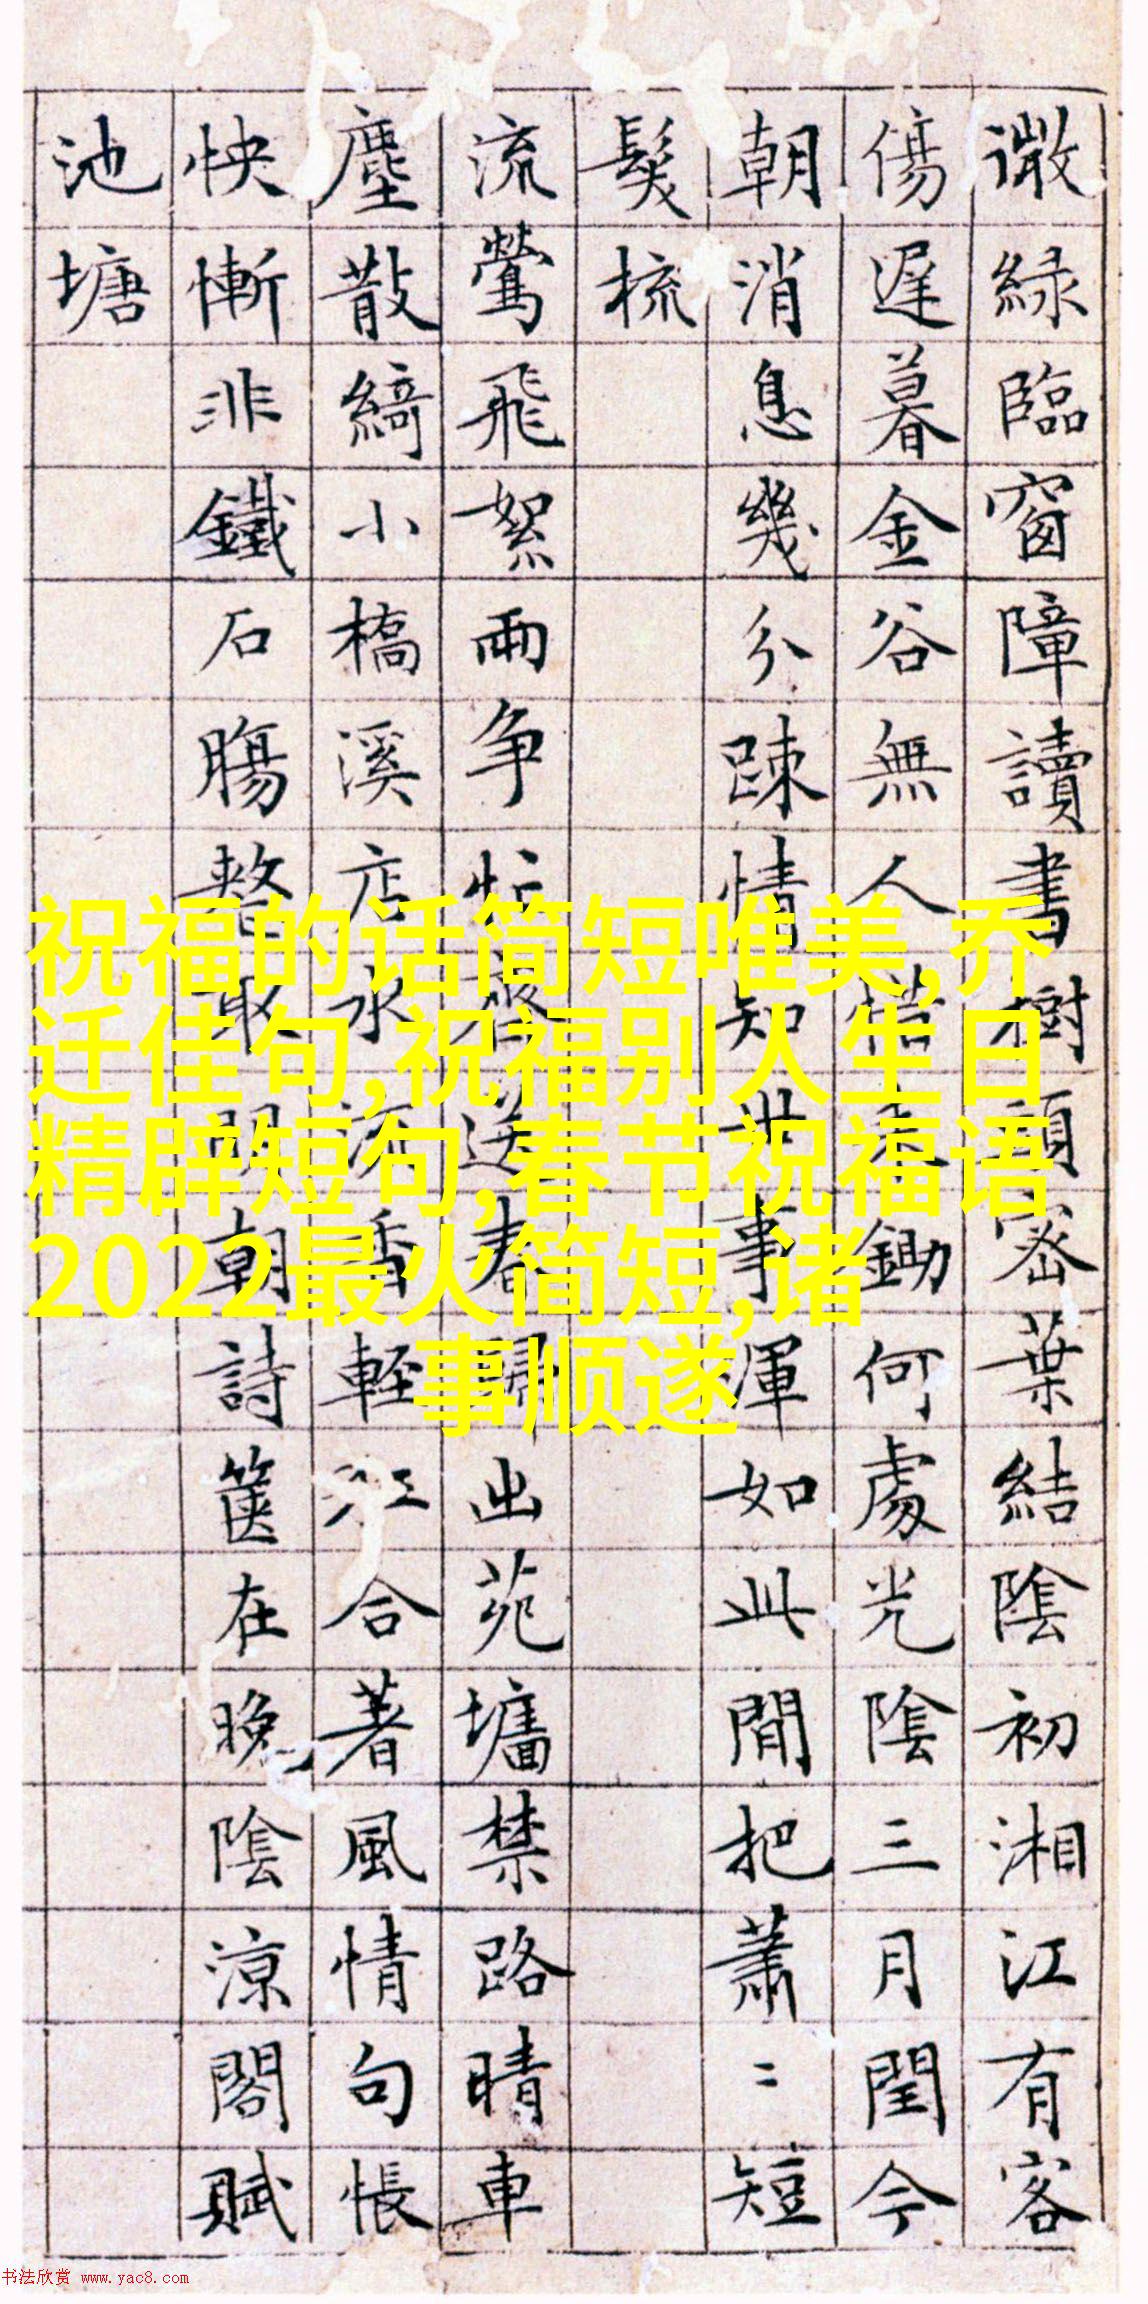 微綠臨窗障讀書樹頭密葉結陰初湘江有客
傷遲暮金谷無人惜鋤何處光陰三月閏今
朝消息幾分踈情知世事渾如此閒把蕭〻短
髮梳
流鶯飛絮兩争忙送春歸出苑墻禁路晴車
塵散綺小橋溪店水流香輕江合著風情句悵
怏慚非鐵石腸整取朝詩篋在晚陰涼閣賦
池塘
祝福的话简短唯美,乔
迁佳句,祝福别人生日
精辟短句,春节祝福语
2022最火简短,诸
事顺遂
书法欣赏 www.yac8.com